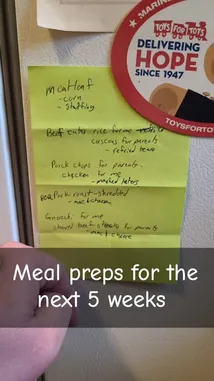 MARINE
TOYS FOR TOTS
DELIVERING
HOPE
SINCE 1947
TOYSFORTO
meatloaf
- corn
- stuffing
Beef rice for me
cuscus for parents
- refried beans
Pork chops for parents
chicken for me
- mashed taters
BBQ Pork roast - shredded
- mac & cheese
Gnocchi for me
shaved beef steaks for parents
- mac & cheese
Meal preps for the
next 5 weeks